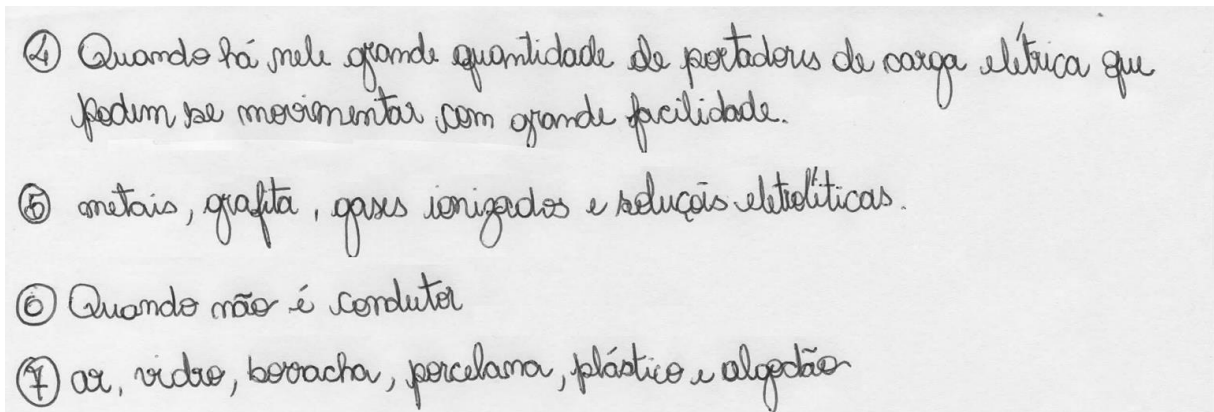 ④ Quando há nele grande quantidade de portadores de carga elétrica que
podem se movimentar com grande facilidade.
⑤ metais, grafita, gases ionizados e soluções eletrolíticas.
⑥ Quando não é condutor
⑦ ar, vidro, borracha, porcelana, plástico e algodão